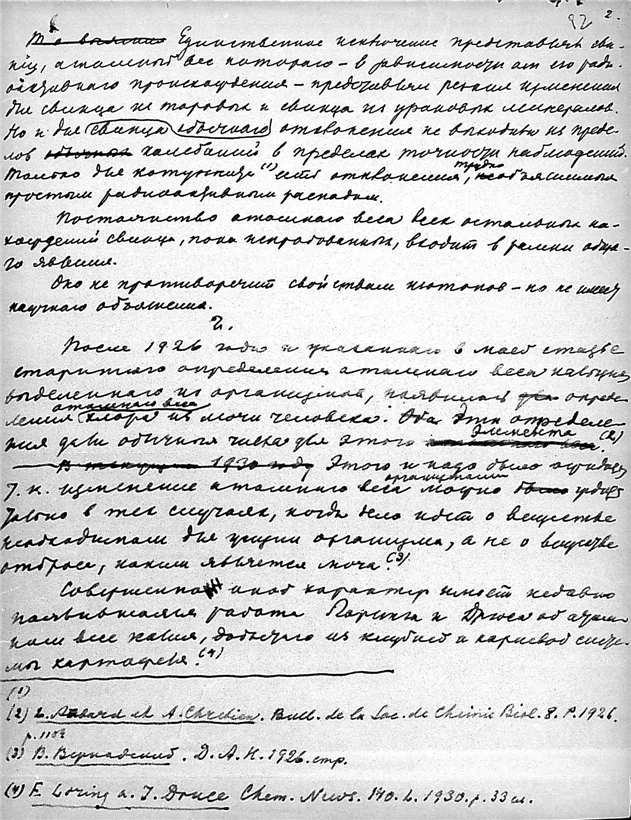 92 2.
Единственное исключение представляет сви-
нец, атомный вес которого – в зависимости от его ради-
оактивного происхождения – представляет резкие изменения
для свинца из торовых и свинца из урановых минералов.
Но и для свинца обычного отклонения не выходят из преде-
лов колебаний в пределах точности наблюдений.
Только для (1) есть отклонения, трудно объяснимые
простым радиоактивным распадом.
Постоянство атомного веса всех остальных на-
хождений свинца, пока испробованных, входит в рамки обще-
го явления.
Оно не противоречит свойствам изотопов – но не имеет
научного объяснения.
2.
После 1926 года и указанного в моей статье
старинного определения атомного веса
выделенного из организмов, появились два опреде-
ления атомного веса хлора из мочи человека. Оба эти определе-
ния дали обычные числа для этого элемента (2).
В 1930 году Этого и надо было ожидать,
т. к. изменение атомного веса организмами можно было ждать
только в тех случаях, когда дело идет о веществе
необходимом для жизни организма, а не о веществе
отброса, каким является моча. (3)
Совершенно иной характер имеет недавно
появившаяся работа Лоринга и Дрюса об атом-
ном весе калия, добытого из клубней и корневой систе-
мы картофеля. (4)
(1)
(2) et A. Chretien. Bull. de la Soc. de Chimie Biol. 8. P. 1926.
p.
(3) В. Вернадский. Д. А. Н. 1926. стр.
(4) F. Loring a. J. Druce Chem. News. 140. L. 1930. p. 33